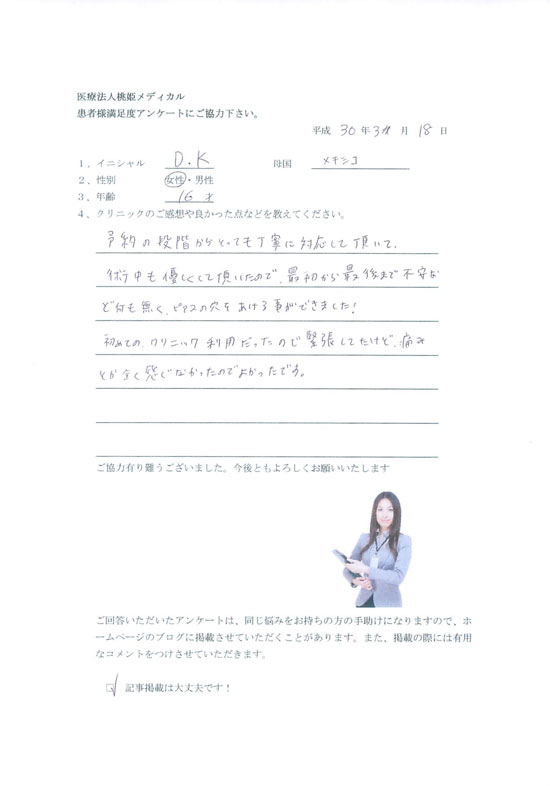 医療法人桃姫メディカル
患者様満足度アンケートにご協力下さい。
平成 30 年 3 月 18 日
1、イニシャル D.K 母国 メキシコ
2、性別 女性・男性
3、年齢 16 才
4、クリニックのご感想や良かった点などを教えてください。
予約の段階からとっても丁寧に対応して頂いて、
術中も優しくして頂いたので、最初から最後まで不安な
ど何も無く、ピアスの穴をあける事ができました!
初めての、クリニック利用だったので緊張してたけど、痛み
とか全く感じなかったのでよかったです。
ご協力有り難うございました。今後ともよろしくお願いいたします
ご回答いただいたアンケートは、同じ悩みをお持ちの方の手助けになりますので、ホ
ームページのブログに掲載させていただくことがあります。また、掲載の際には有用
なコメントをつけさせていただきます。
☑ 記事掲載は大丈夫です!